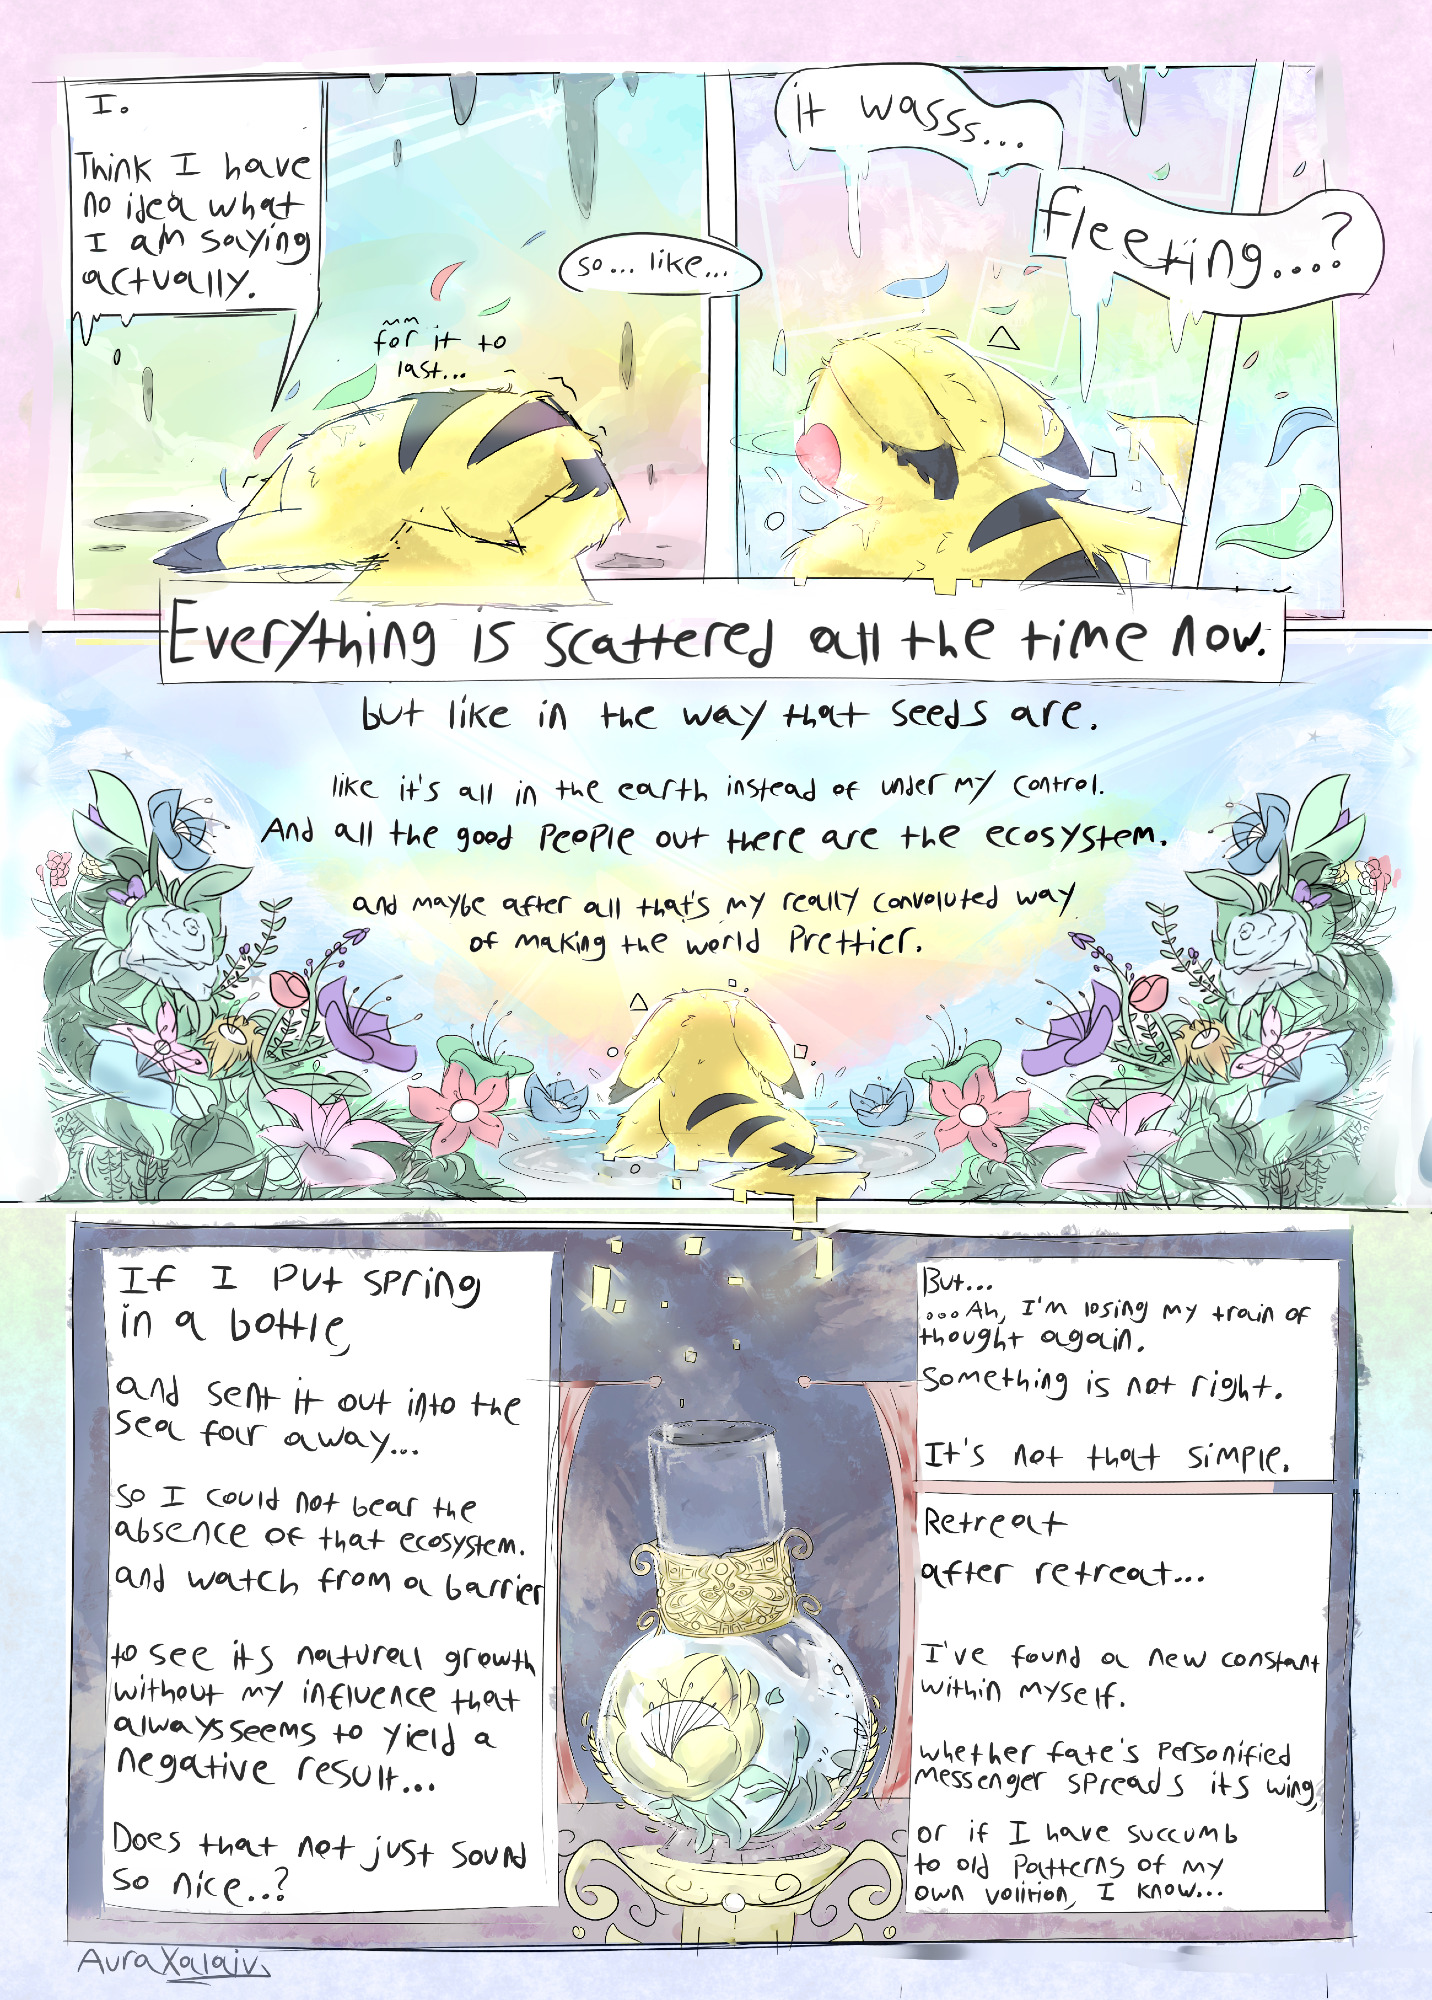 I.
Think I have
no idea what
I am saying
actually.
for it to
last...
so... like...
it wasss...
fleeting....?
Everything is scattered all the time now.
but like in the way that seeds are.
like it's all in the earth instead of under my control.
And all the good people out there are the ecosystem.
and maybe after all that's my really convoluted way
of making the world prettier.
If I put spring
in a bottle,
and sent it out into the
sea far away...
so I could not bear the
absence of that ecosystem.
and watch from a barrier
to see its natural growth
without my influence that
always seems to yield a
negative result...
Does that not just sound
so nice..?
But...
...Ah, I'm losing my train of
thought again.
Something is not right.
It's not that simple.
Retreat
after retreat...
I've found a new constant
within myself.
whether fate's personified
messenger spreads its wing,
or if I have succumb
to old patterns of my
own volition, I know...
AuraXalaiv